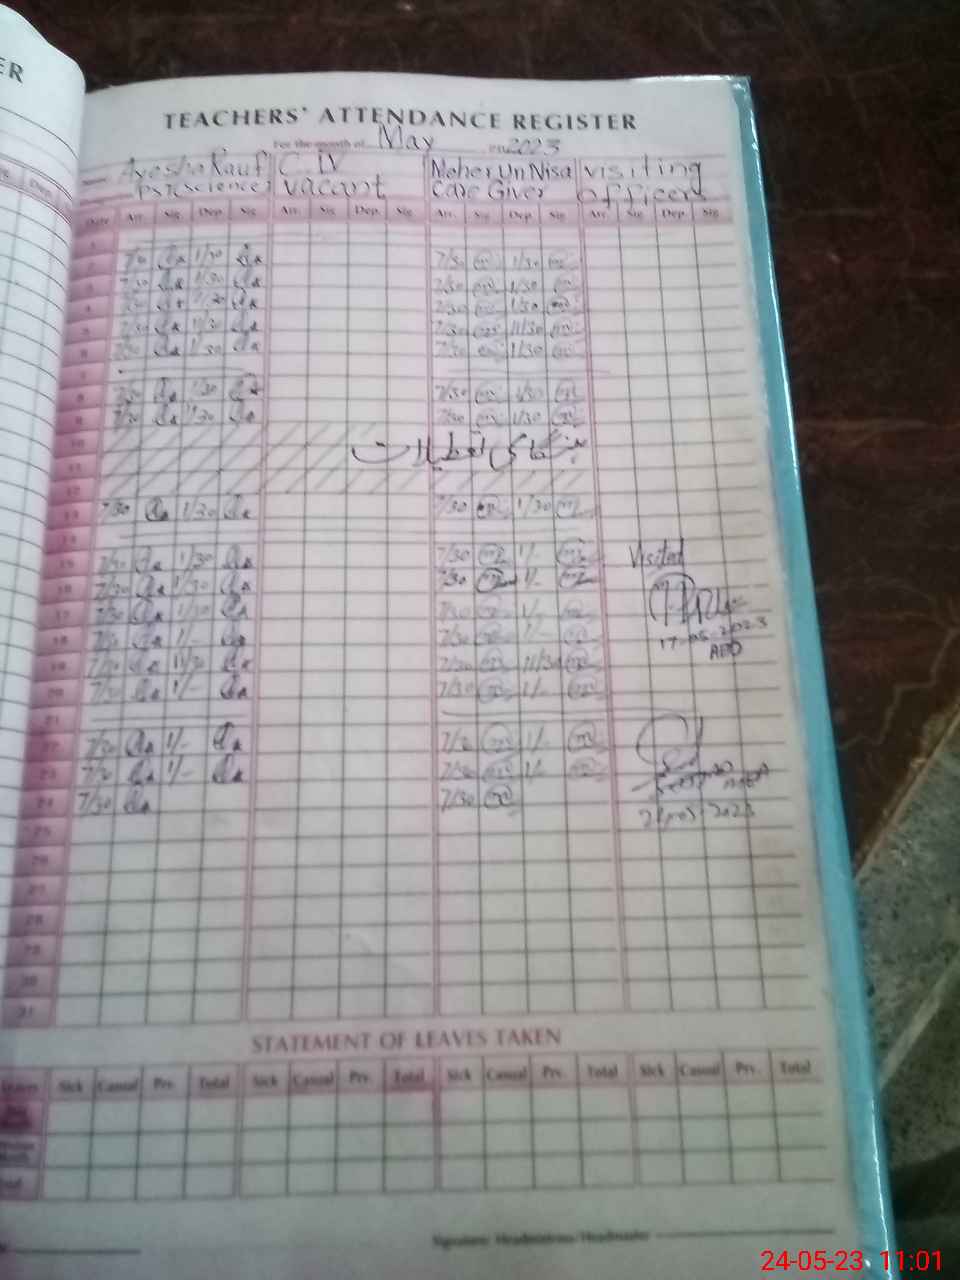 ER
TEACHERS' ATTENDANCE REGISTER
For the month of May 2023
Name Ayesha Rauf C. IV Meher Un Nisa visiting
PST Science vacant Care Giver officers
Dep.
Date Arr. Sig. Dep. Sig. Arr. Sig. Dep. Sig. Arr. Sig. Dep. Sig. Arr. Sig. Dep. Sig.
1
2 7/30 1/30 7/30 1/30
3 7/30 1/30 7/30 1/30
4 7/30 1/30 7/30 1/30
5 7/30 11/30 7/30 11/30
6 7/30 1/30 7/30 1/30
7
8 7/30 1/30 7/30 1/30
9 7/30 1/30 7/30 1/30
10 ہنگامی تعطیلات
11
12
13 7/30 1/30 7/30 1/30
14
15 7/30 1/30 7/30 1/- Visited
16 7/30 1/30 7/30 1/-
17 7/30 1/30 7/30 1/-
18 7/30 1/- 7/30 1/- 17-05-2023
AEO
19 7/30 11/30 7/30 11/30
20 7/30 1/- 7/30 1/-
21
22 7/30 1/- 7/30 1/-
23 7/30 1/- 7/30 1/-
24 7/30 7/30
25
26
27
28
29
30
31
STATEMENT OF LEAVES TAKEN
Leaves Sick Casual Prv. Total Sick Casual Prv. Total Sick Casual Prv. Total Sick Casual Prv. Total
Total
Signature Headmistress/Headmaster
24-05-23 11:01